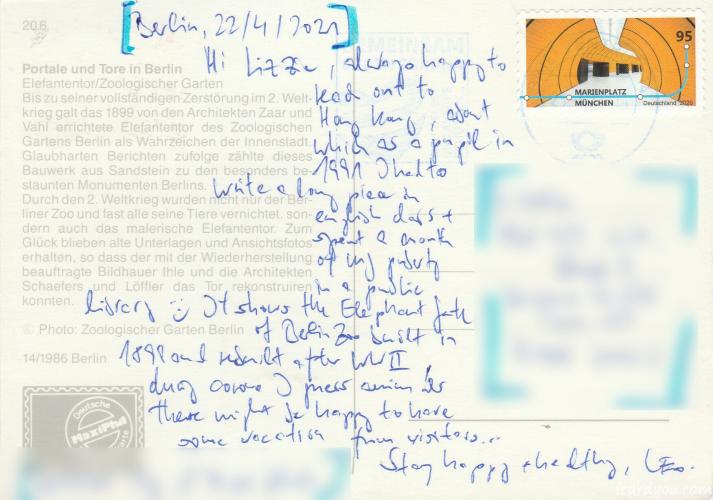 20.6.
Portale und Tore in Berlin
Elefantentor/Zoologischer Garten
Bis zu seiner vollständigen Zerstörung im 2. Welt-
krieg galt das 1899 von den Architekten Zaar und
Vahl errichtete Elefantentor des Zoologischen
Gartens Berlin als Wahrzeichen der Innenstadt.
Glaubharten Berichten zufolge zählte dieses
Bauwerk aus Sandstein zu den besonders be-
staunten Monumenten Berlins.
Durch den 2. Weltkrieg wurden nicht nur der Ber-
liner Zoo und fast alle seine Tiere vernichtet, son-
dern auch das malerische Elefantentor. Zum
Glück blieben alte Unterlagen und Ansichtsfotos
erhalten, so dass der mit der Wiederherstellung
beauftragte Bildhauer Ihle und die Architekten
Schaefers und Löffler das Tor rekonstruieren
konnten.
© Photo: Zoologischer Garten Berlin
14/1986 Berlin
Deutsche
MaxiPhil
Karte
Berlin, 22/4/2021
Hi Lizzie, always happy to
reach out to
Hong Kong, about
which as a pupil in
1991 I had to
write a long piece in
english class +
spent a month
of my puberty
in a public
library ☺ It shows the Elephant Gate
of Berlin Zoo built in
1899 and rebuilt after WW II,
during corona I guess animals
there might be happy to have
some vacation from visitors...
Stay happy + healthy,
GEMEINSAM
95
MARIENPLATZ
MÜNCHEN
Deutschland 2020